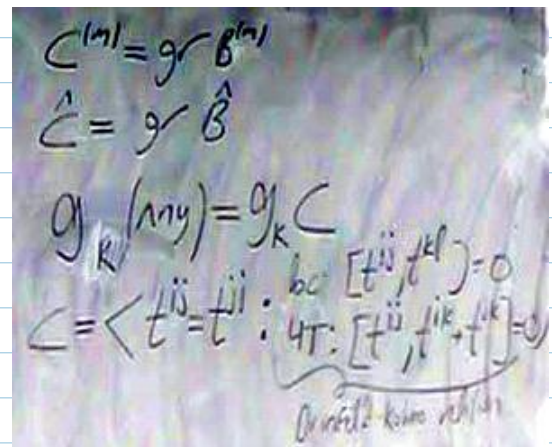 C^(m) = gr B^(m)
Ĉ = gr B̂
g_K (any) = g_K C
C = < t^ij = t^ji : loc: [t^ij, t^kl] = 0
4T: [t^ij, t^ik + t^jk] = 0
Drinfel'd Kohno